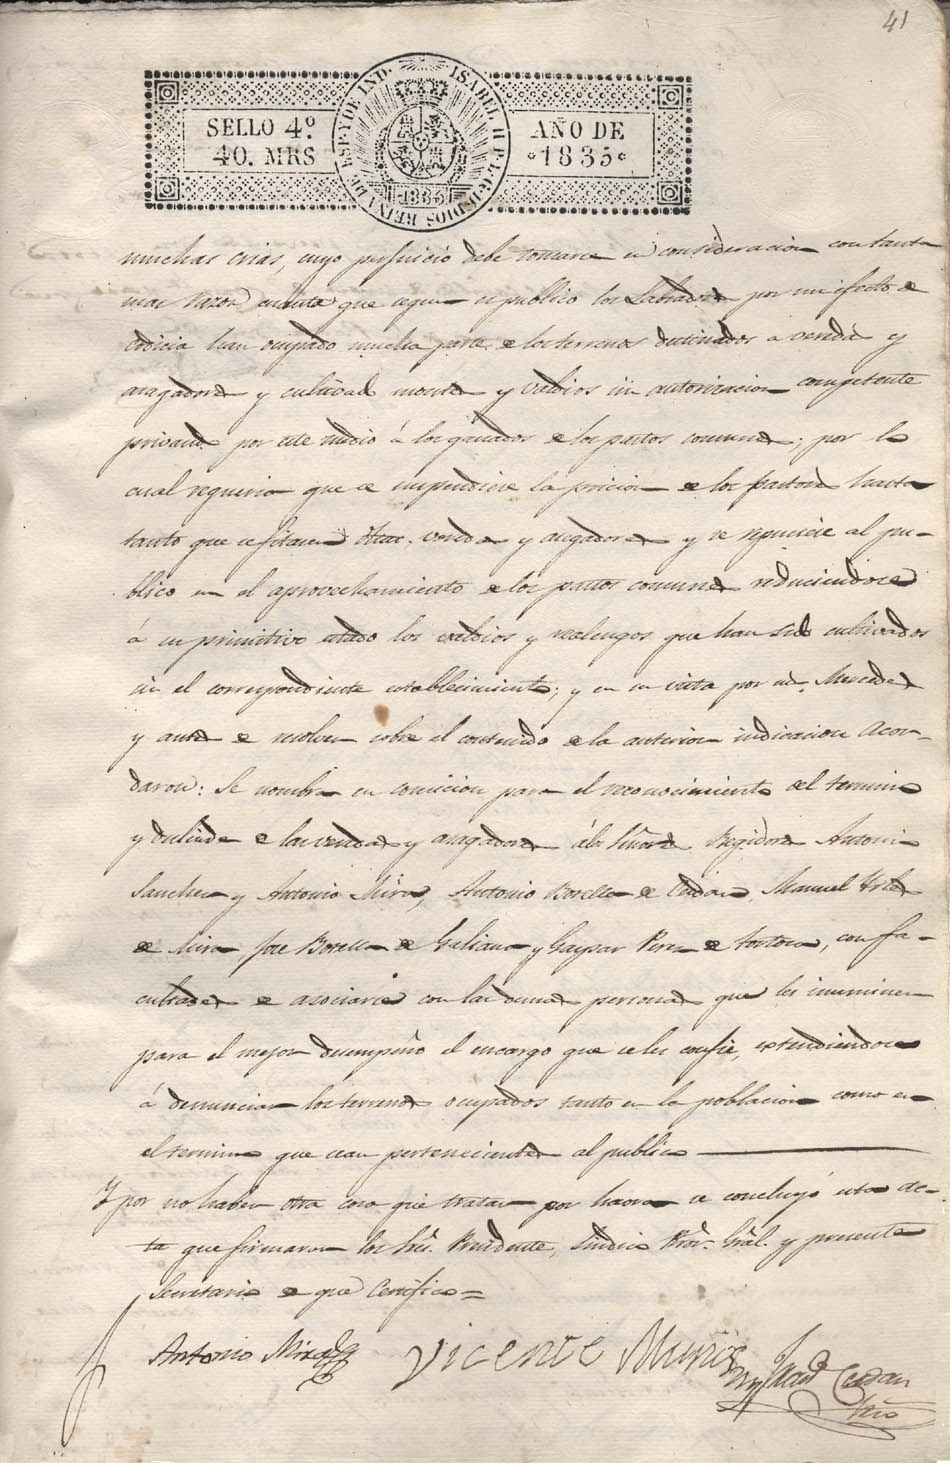 41
SELLO 4.º
40. MRS
ISABEL II P. L. G. DE DIOS REINA DE ESP. Y DE IND.
1835
AÑO DE
1835
muchas crias, cuyo perjuicio debe tomarse en consideracion con tanta
mas razon cuanto que segun es publico los Labradores por un efecto de
codicia han ocupado mucha parte de los terrenos destinados a veredas y
asagadores y cultivado montes y valdios sin autorizacion competente
privando por este medio á los ganados de los pastos comunes; por lo
cual requeria que se suspendiese la de los pastores hasta
tanto que se fitasen otras veredas y asagadores y se repusiese al pu-
blico en el aprovechamiento de los pastos comunes reduciendose
á su primitivo estado los valdios y realengos que han sido cultivados
sin el correspondiente establecimiento; y en su vista por sus Mercedes
y antes de resolver sobre el contenido de la anterior indicacion Acor-
daron: Se nombra en comision para el reconocimiento del termino
y deslinde de las veredas y asagadores á los Señores Regidores Antonio
Sanchez y Antonio Miro, Antonio Botella de Manuel
de Mira Jose Botella de Galiana y Gaspar Perez de con fa-
cultades de asociarse con las demas personas que les
para el mejor desempeño del encargo que se les confie, extendiendose
á denunciar los terrenos ocupados tanto en la poblacion como en
el termino que sean pertenecientes al publico
Y por no haber otra cosa que tratar por haora se concluyó esta ac-
ta que firmaron los Sres. Presidente, Sindico Pror. Gral. y presente
Secretario de que Certifico =
Antonio
Vicente
Srio